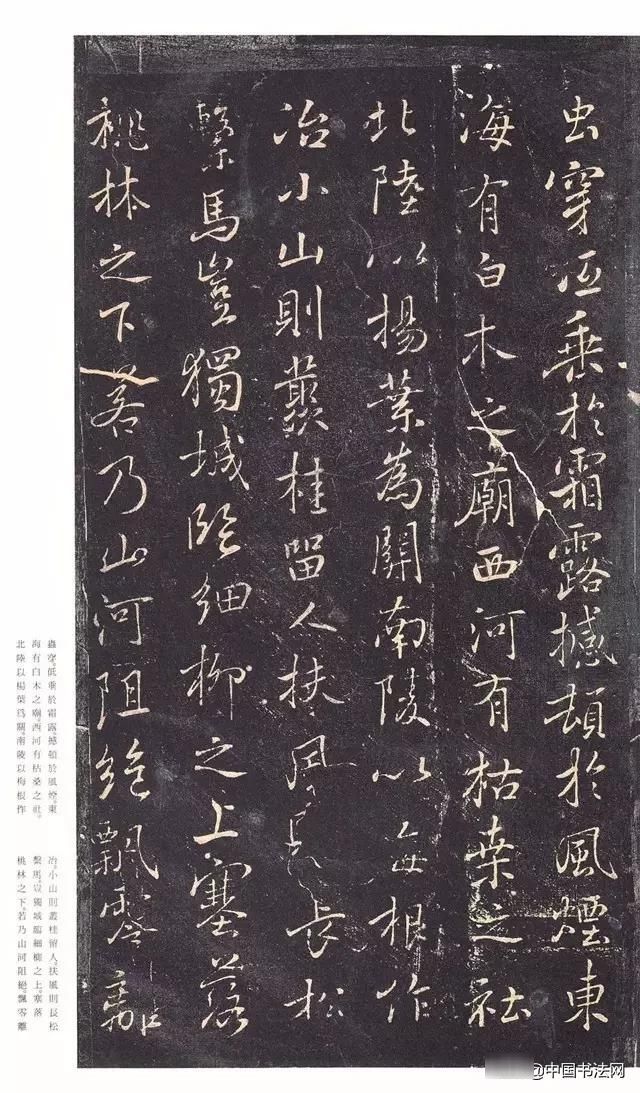 虫穿低垂於霜露撼頓於風煙東
海有白木之廟西河有枯桑之社
北陸以楊葉為關南陵以每根作
冶小山則叢桂留人扶風則長松
繫馬豈獨城臨細柳之上塞落
桃林之下若乃山河阻絶飄零離
蟲穿。低垂於霜露。撼頓於風煙。東
海有白木之廟。西河有枯桑之社。
北陸以楊葉爲關。南陵以梅根作
冶。小山則叢桂留人。扶風則長松
繫馬。豈獨城臨細柳之上。塞落
桃林之下。若乃山河阻絶。飄零離
@中国书法网